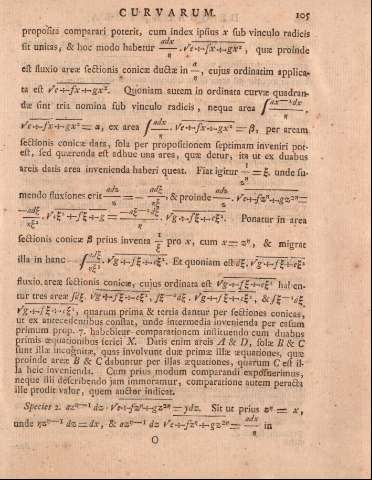 CURVARUM. 105
proposita comparari poterit, cum index ipsius x sub vinculo radicis
sit unitas, & hoc modo habetur adx/η . √e+fx+gx², quæ proinde
est fluxio areæ sectionis conicæ ductæ in a/η, cujus ordinatim applica-
ta est √e+fx+gx². Quoniam autem in ordinata curvæ quadran-
dæ sint tria nomina sub vinculo radicis, neque area
√e+fx+gx² = α, ex area ∫adx/η . √e+fx+gx² = β, per aream
sectionis conicæ data, sola per propositionem septimam inveniri pot-
est, sed quærenda est adhuc una area, quæ detur, ita ut ex duabus
areis datis area invenienda haberi queat. Fiat igitur 1/zη = ξ, unde su-
mendo fluxiones erit & proinde
Ponatur in area
sectionis conicæ β prius inventa 1/ξ pro x, cum x = zη, & migrat
illa in hanc Et quoniam est
fluxio areæ sectionis conicæ, cujus ordinata est haben-
tur tres areæ
quarum prima & tertia dantur per sectiones conicas,
ut ex antecedentibus constat, unde intermedia invenienda per casum
primum prop. 7. habebitur comparationem instituendo cum duabus
primis æquationibus seriei X. Datis enim areis A & D, solæ B & C
sunt illæ incognitæ, quas involvunt duæ primæ illæ æquationes, quare
proinde areæ B & C dabuntur per illas æquationes, quarum C est il-
la heic invenienda. Cum prius modum comparandi exposuerimus,
neque illi describendo jam immoramur, comparatione autem peracta
ille prodit valor, quem auctor indicat.
Species 2. azη—1 dz · √e+fzη+gz2η = ydz. Sit ut prius zη = x,
unde ηzη—1 dz = dx, & azη—1 dz √e+fzη+gz2η = adx/η in
O